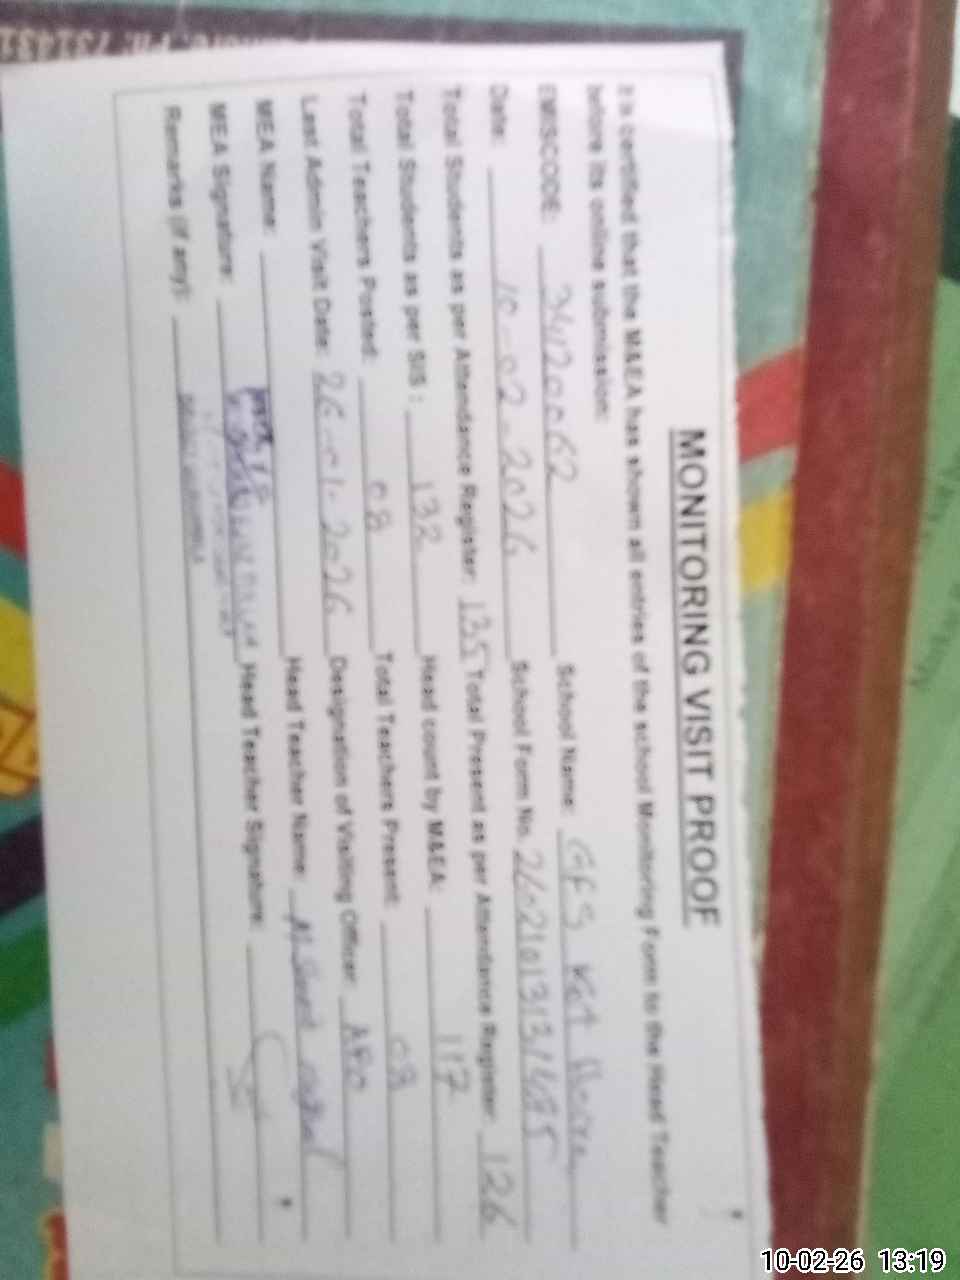 MONITORING VISIT PROOF
It is certified that the M&EA has shown all entries of the school Monitoring Form to the Head Teacher
before its online submission:
EMISCODE: 34120062 School Name: GES
Date: 10-02-2026 School Form No.
Total Students as per Attendance Register: 135 Total Present as per Attendance Register: 126
Total Students as per SIS: 132 Head count by M&EA: 117
Total Teachers Posted: 08 Total Teachers Present: 08
Last Admin Visit Date: 26-01-2026 Designation of Visiting Officer: AEO
MEA Name: Head Teacher Name:
MEA Signature: Head Teacher Signature:
Remarks (if any):
10-02-26 13:19